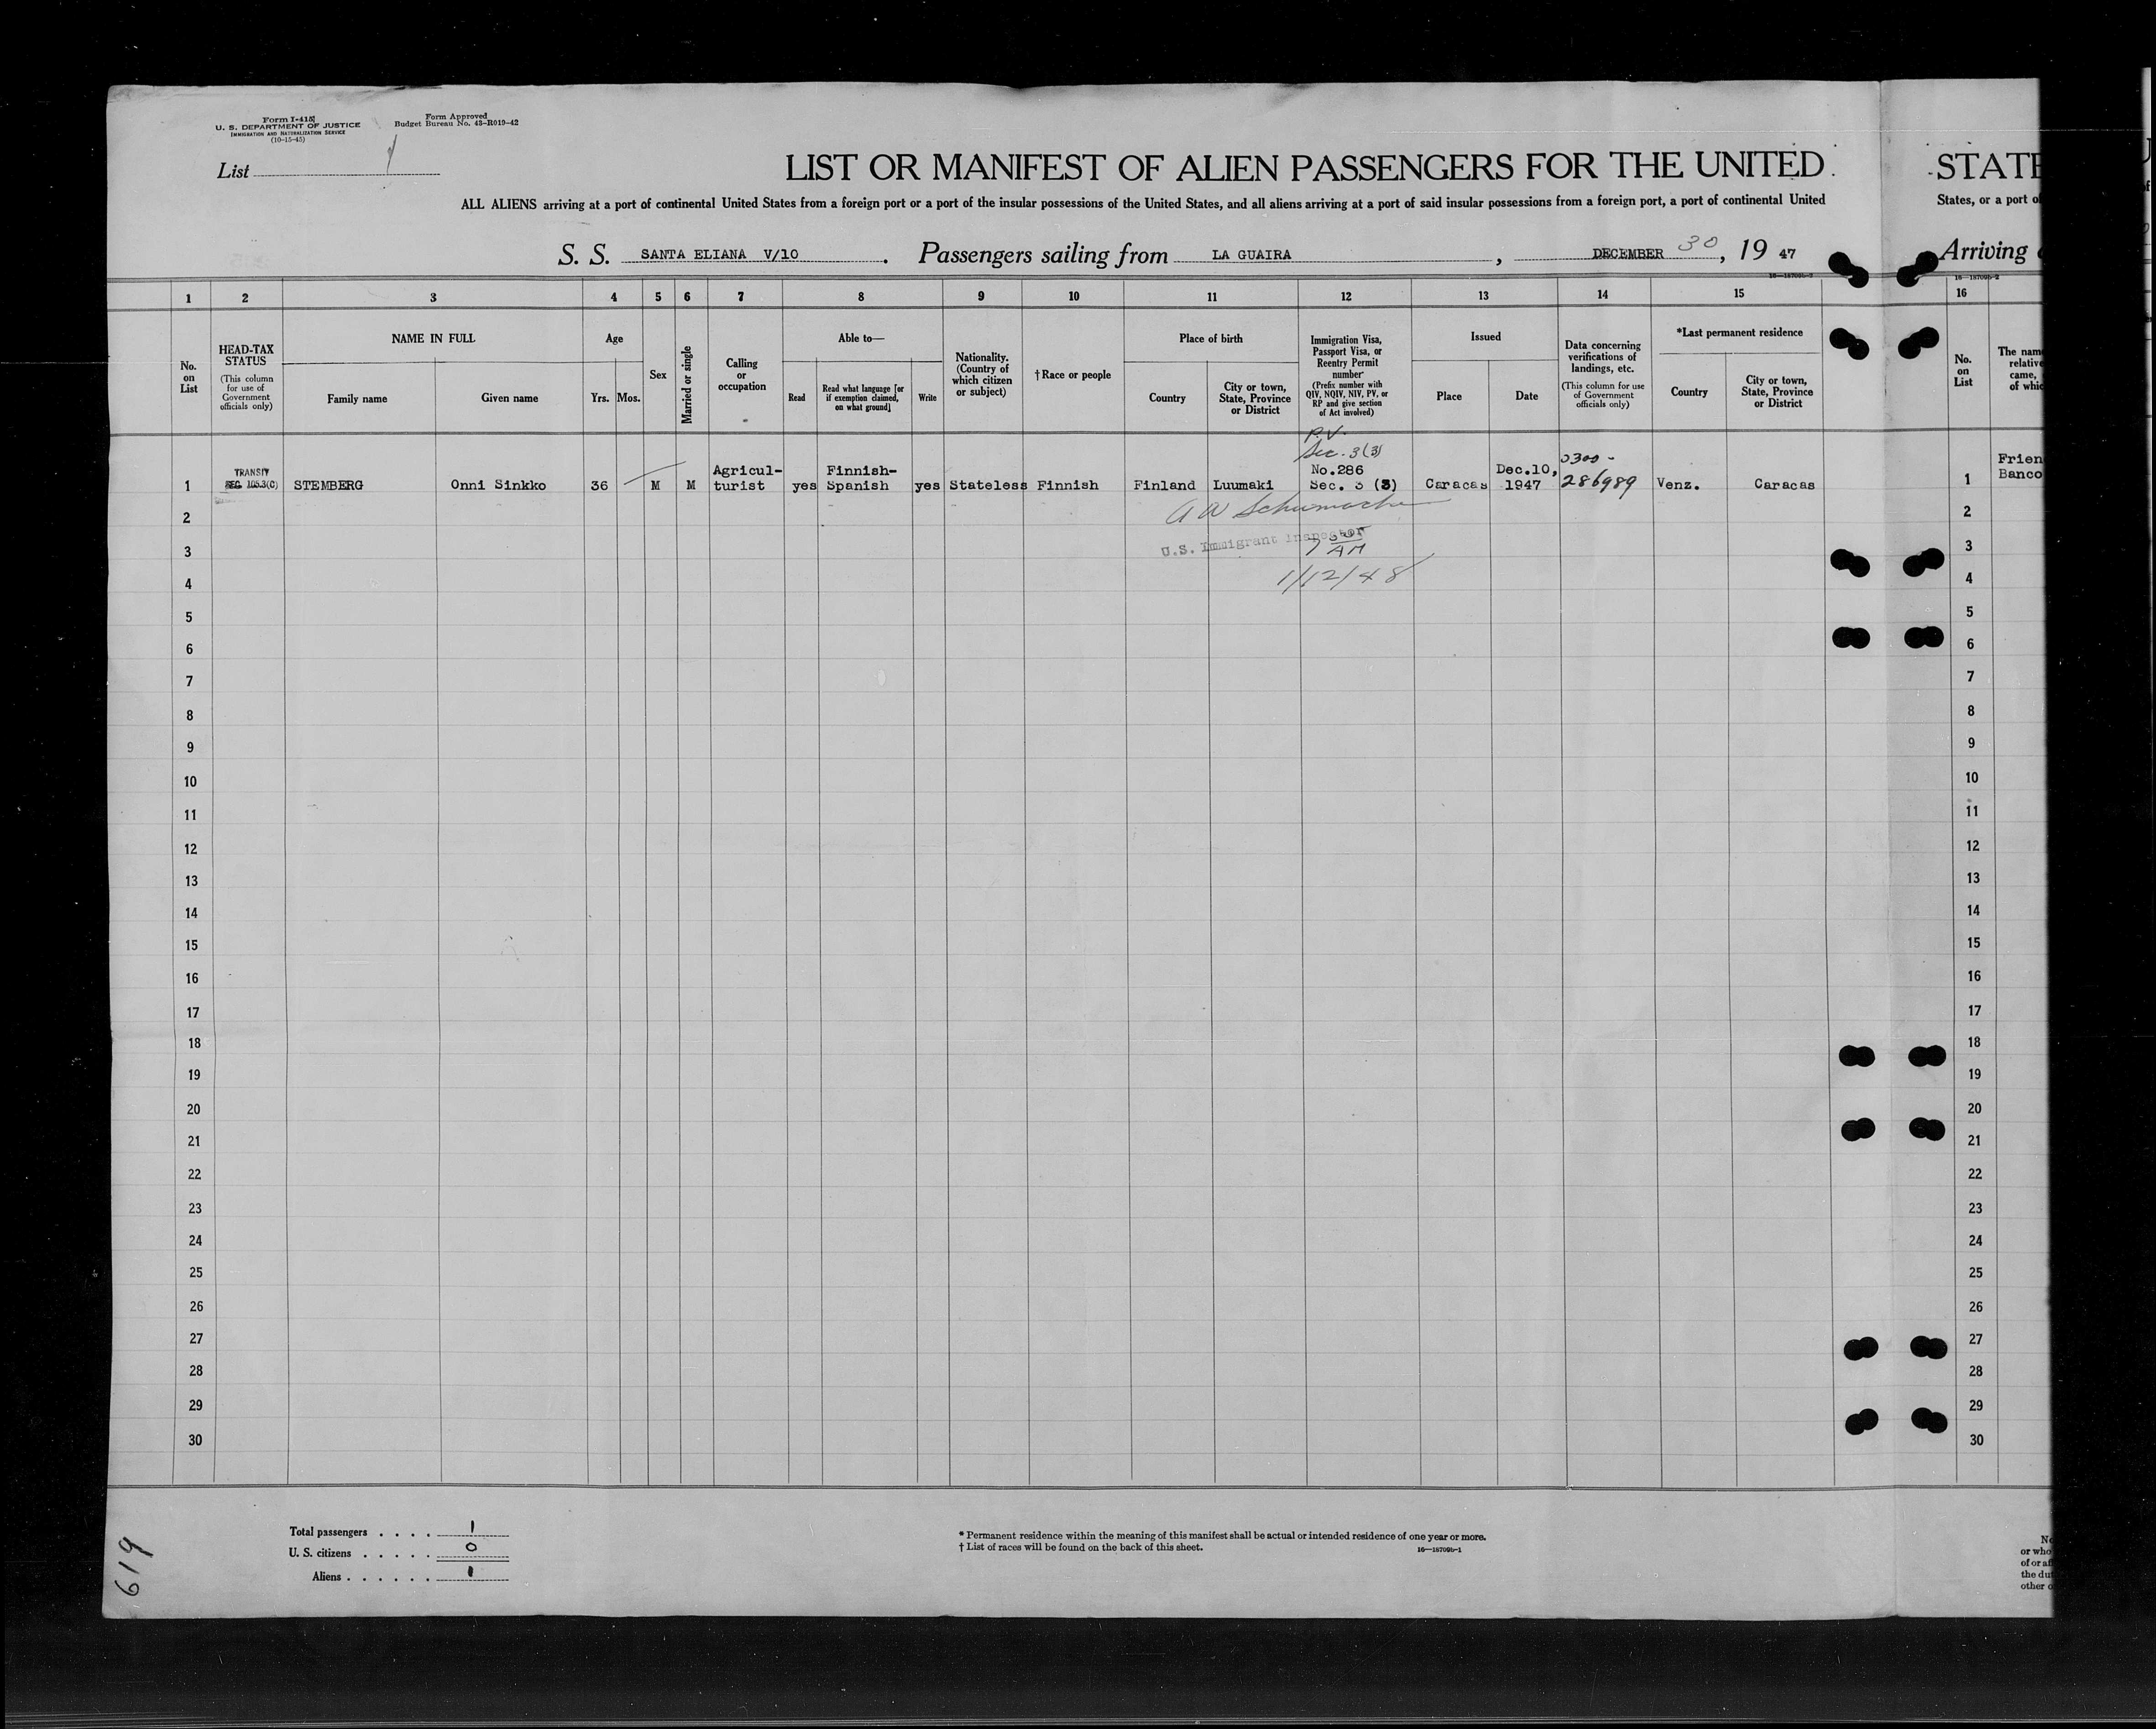 Form I-415
U. S. DEPARTMENT OF JUSTICE
IMMIGRATION AND NATURALIZATION SERVICE
(10-15-45)
Form Approved
Budget Bureau No. 43-R019-42
List 1
LIST OR MANIFEST OF ALIEN PASSENGERS FOR THE UNITED
STATE
ALL ALIENS arriving at a port of continental United States from a foreign port or a port of the insular possessions of the United States, and all aliens arriving at a port of said insular possessions from a foreign port, a port of continental United
States, or a port o
S. S. SANTA ELIANA V/10 . Passengers sailing from LA GUAIRA , DECEMBER 30 , 19 47
Arriving
16—18709b-2
16—18709b-2
1 2 3 4 5 6 7 8 9 10 11 12 13 14 15 16
No. on List
HEAD-TAX STATUS
(This column for use of Government officials only)
NAME IN FULL
Family name
Given name
Age
Yrs. Mos.
Sex
Married or single
Calling or occupation
Able to—
Read
Read what language [or if exemption claimed, on what ground]
Write
Nationality. (Country of which citizen or subject)
†Race or people
Place of birth
Country
City or town, State, Province or District
Immigration Visa, Passport Visa, or Reentry Permit number
(Prefix number with QIV, NQIV, NIV, PV, or RP and give section of Act involved)
Issued
Place
Date
Data concerning verifications of landings, etc.
(This column for use of Government officials only)
*Last permanent residence
Country
City or town, State, Province or District
No. on List
The nam
relative
came,
of whic
P.V.
Sec. 3(3)
TRANSIT Agricul- Finnish- No.286 Dec.10, 0300 - Frien
1 SEC. 105.3(C) STEMBERG Onni Sinkko 36 M M turist yes Spanish yes Stateless Finnish Finland Luumaki Sec. 3 (3) Caracas 1947 286989 Venz. Caracas 1 Banco
2 A W Schumache 2
3 U.S. Immigrant Inspector 3
AM
4 1/12/48 4
5 5
6 6
7 7
8 8
9 9
10 10
11 11
12 12
13 13
14 14
15 15
16 16
17 17
18 18
19 19
20 20
21 21
22 22
23 23
24 24
25 25
26 26
27 27
28 28
29 29
30 30
Total passengers . . . . 1
U. S. citizens . . . . . 0
Aliens . . . . . . 1
* Permanent residence within the meaning of this manifest shall be actual or intended residence of one year or more.
† List of races will be found on the back of this sheet.
16—18709b-1
No
or who
of or af
the du
other o
619